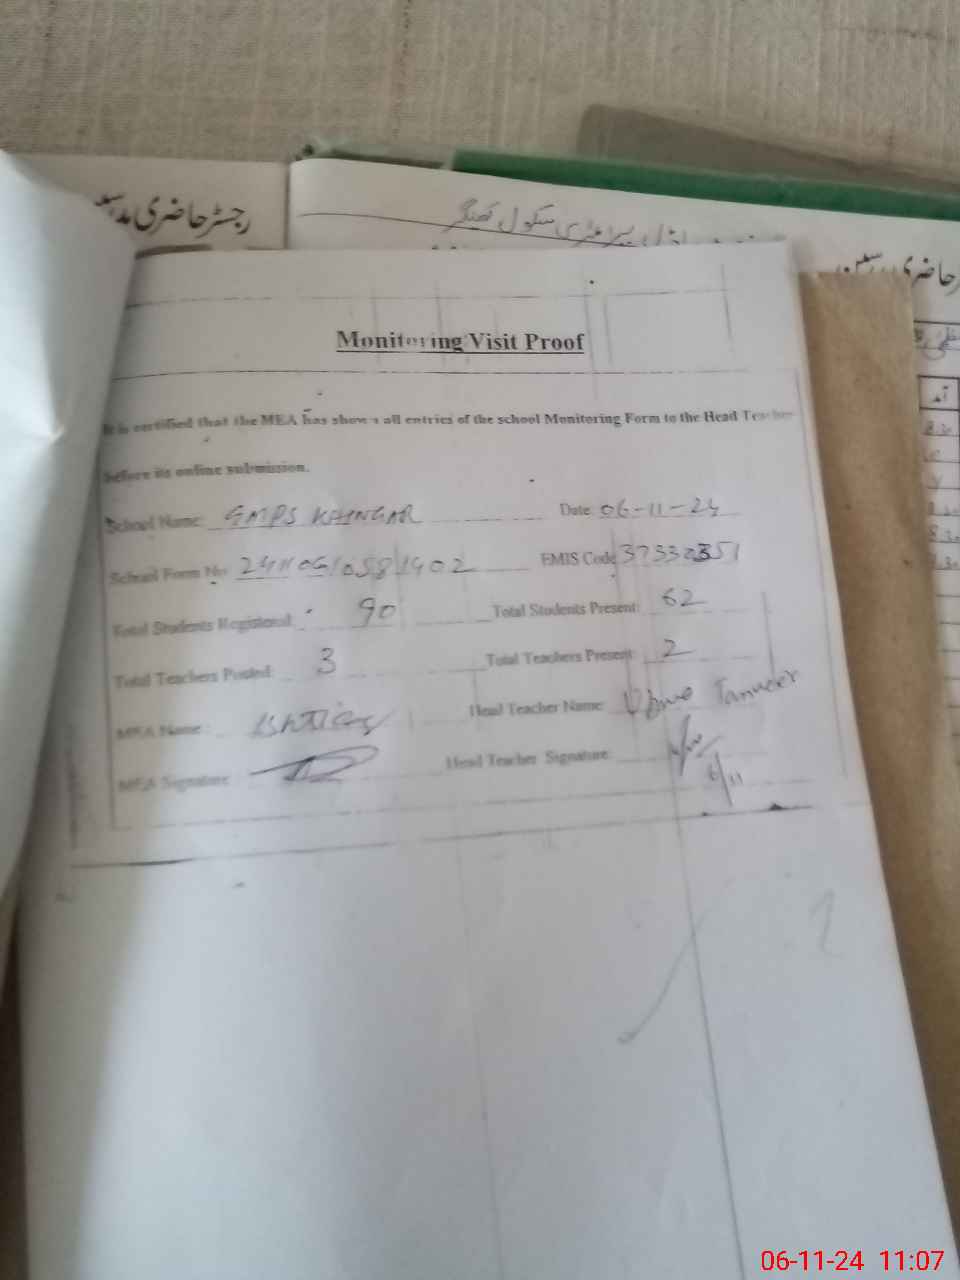 رجسٹر حاضری مدرسین
سکول کھینگر
حاضری
Monitoring Visit Proof
It is certified that the MEA has shown all entries of the school Monitoring Form to the Head Teacher
before its online submission.
School Name: GMPS KHINGAR Date: 06-11-24
School Form No: EMIS Code 37330351
Total Students Registered: 90 Total Students Present: 62
Total Teachers Posted: 3 Total Teachers Present: 2
MEA Name: Head Teacher Name: Tanveer
MEA Signature: Head Teacher Signature:
6/11
آمد
06-11-24 11:07